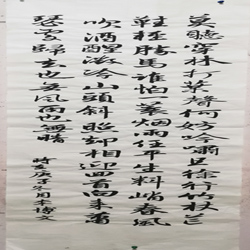 莫聽穿林打葉聲何妨吟嘯且徐行竹杖芒
鞋輕勝馬誰怕一蓑烟雨任平生料峭春風
吹酒醒微冷山頭斜照却相迎回首向來蕭
瑟處歸去也無風雨也無晴
時庚子冬月李博文